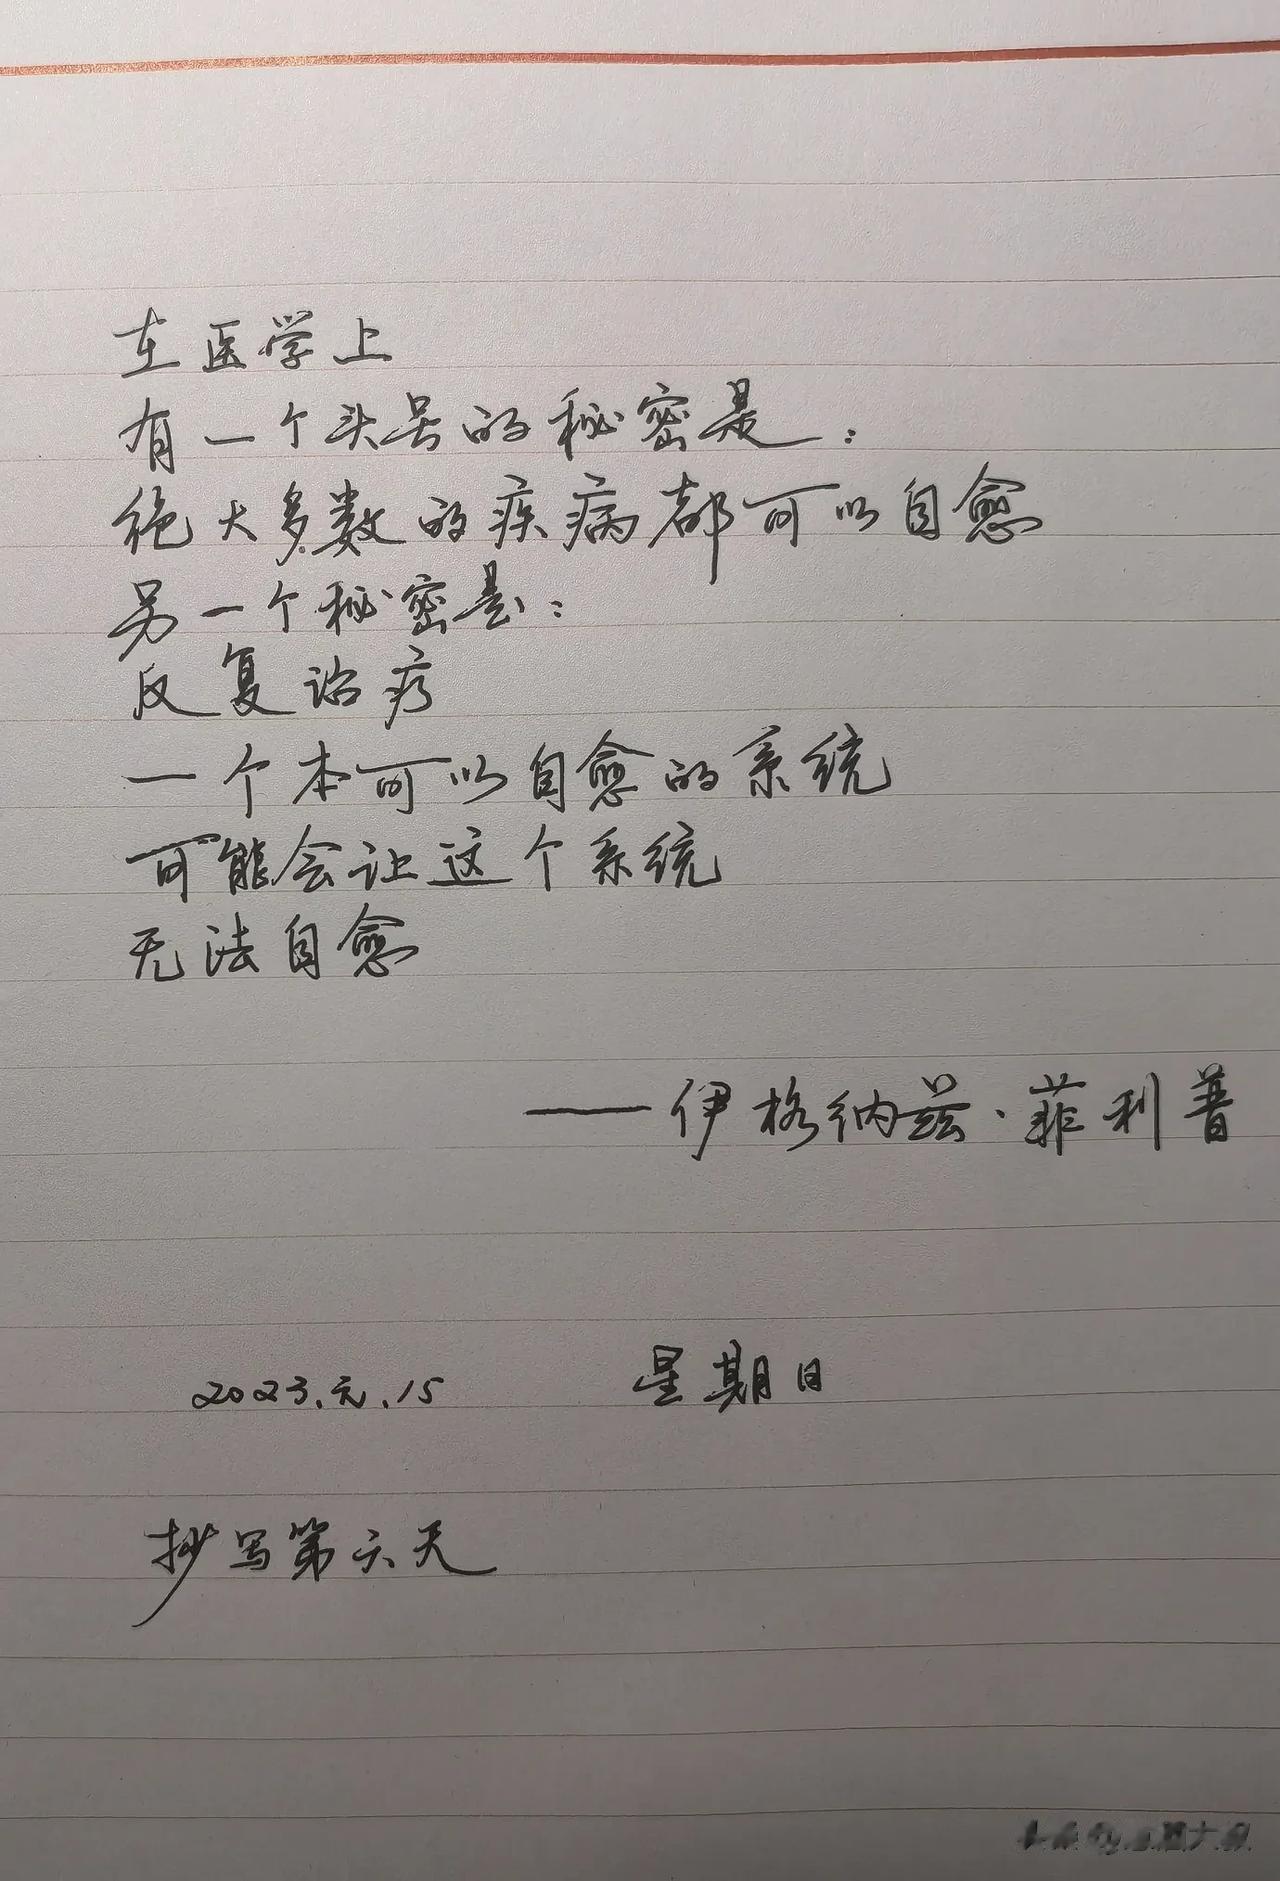 在医学上
有一个头号的秘密是：
绝大多数的疾病都可以自愈
另一个秘密是：
反复治疗
一个本可以自愈的系统
可能会让这个系统
无法自愈
——伊格纳兹·菲利普
2023.元.15 星期日
抄写第六天